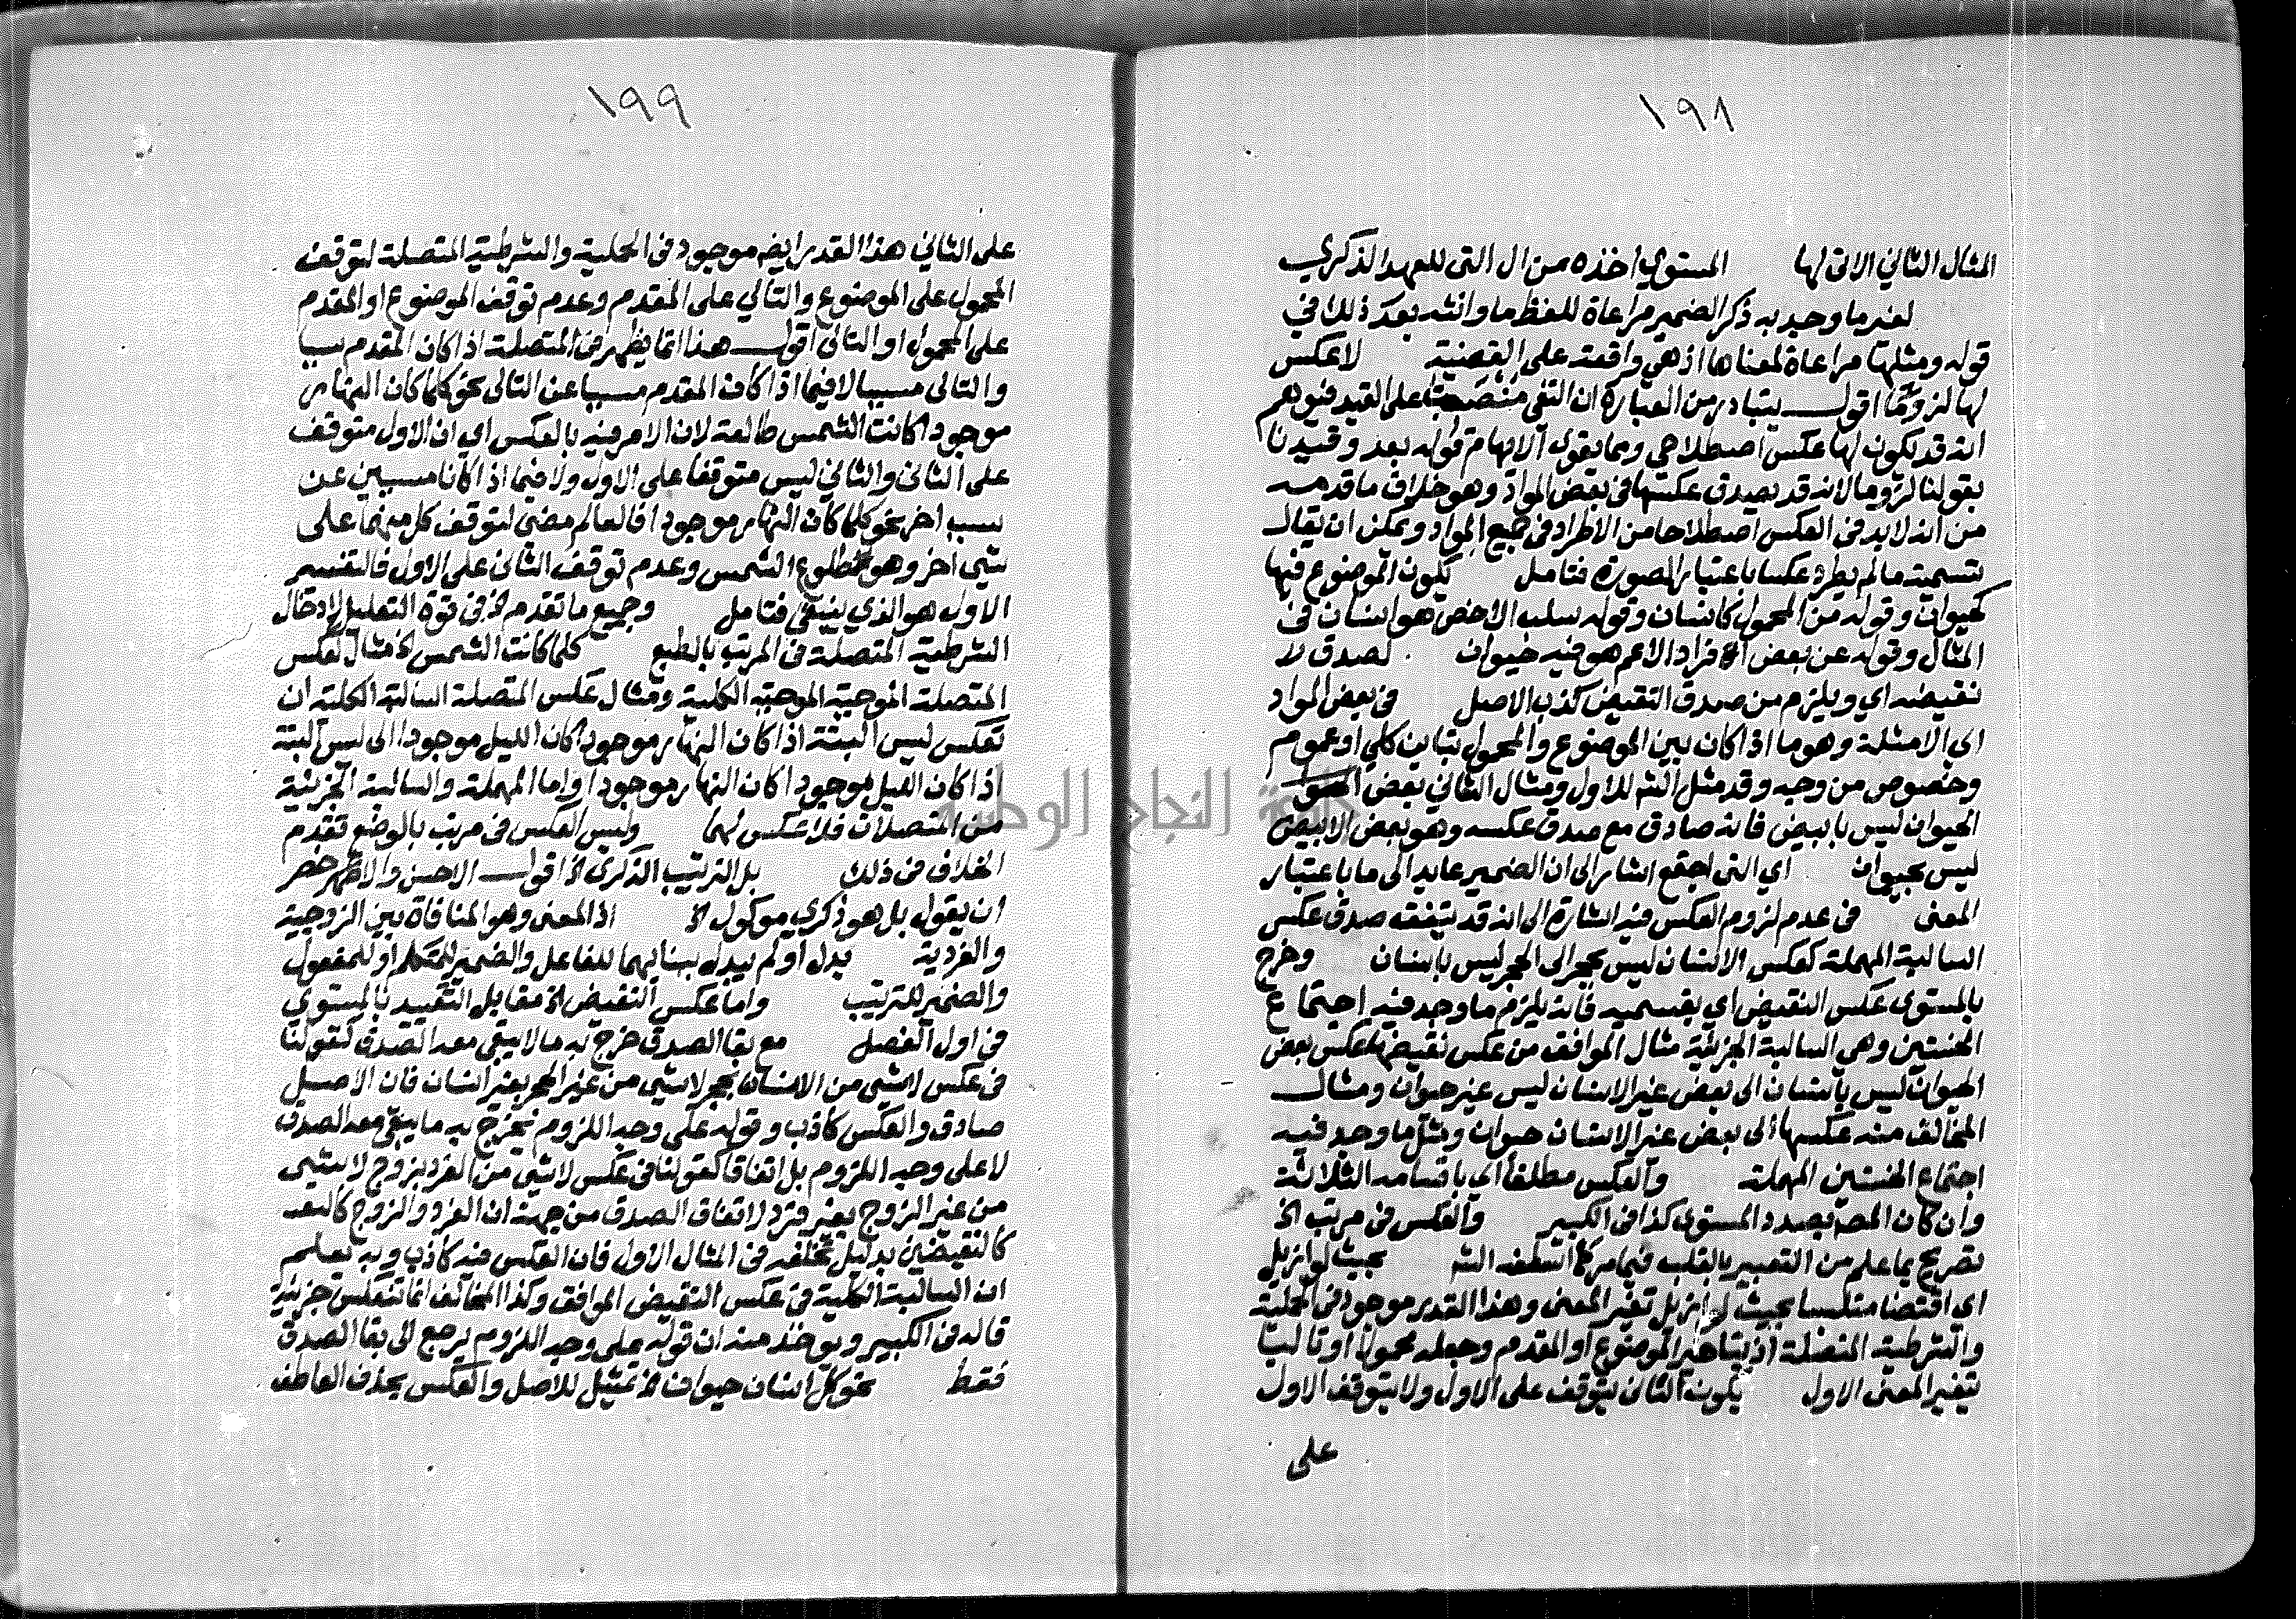 ١٩٨
المثال الثاني الاتي لها المستوي اخذه من ال التي للعهد الذكري
لغير ما وحيد به ذكر الضمير مراعاة للفظ ما وانثه بعد ذلك في
قوله ومثلها مراعاة لمعناها اذ هي واقعة على القضية لا عكس
لها لزوما اقول يتبادر من العبارة ان النفي منصب على القيد فيوهم
انه قد يكون لها عكس اصطلاحي ومما يقوي الايهام قوله بعد وقيدنا
بقولنا لزوما لانه قد يصدق عكسها في بعض المواد وهو خلاف ما قدمه
من انه لابد في العكس اصطلاحا من الاطراد في جميع المواد ويمكن ان يقال
تسمية ما لم يطرد عكسا باعتبار الصورة فتامل يكون الموضوع فيها
كحيوان وقوله من المحمول كانسان وقوله سلب الاخص هو انسان في
المثال وقوله عن بعض افراد الاعم هو فيه حيوان لصدق
نقيضه اي ويلزم من صدق النقيض كذب الاصل في بعض المواد
اي الامثلة وهو ما اذا كان بين الموضوع والمحمول تباين كلي او عموم
وخصوص من وجه وقد مثل الشه للاول ومثال الثاني بعض
الحيوان ليس بابيض فانه صادق مع صدق عكسه وهو بعض الابيض
ليس بحيوان اي التي اجتمع اشار الى ان الضمير عايد الى ما باعتبار
المعنى في عدم لزوم العكس فيه اشارة الى انه قد يتفقه صدق عكس
السالبة المهملة كعكس الانسان ليس بحجر الى الحجر ليس بانسان وخرج
بالمستوى عكس النقيض اي بقسميه فانه يلزم ما وجد فيه اجتماع
الخستين وهي السالبة الجزئية مثال الموافق من عكس نقيضها عكس بعض
الحيوان ليس بانسان الى بعض غير الانسان ليس غير حيوان ومثال
المخالف منه عكسها الى بعض غير الانسان حيوان ومثل ما وجد فيه
اجتماع الخستين المهملة والعكس مطلقا اي باقسامه الثلاثة
وان كان المصه بصدد المستوى كذا في الكبير والعكس في مرتب الخ
تصريح بما علم من التعبير بالقلب فيما مر كما اسلفه الشه بحيث لو ازيل
اي اقتضا متلبسا بحيث لو ازيل تغير المعنى وهذا القدر موجود في الحملية
والشرطية المتصلة اذ بتاخير الموضوع او المقدم وجعله محمولا او تاليا
تغير المعنى الاول يكون الثاني يتوقف على الاول ولا يتوقف الاول
على
١٩٩
على الثاني هذا القدر ايضه موجود في الحملية والشرطية المتصلة لتوقف
المحمول على الموضوع والتالي على المقدم وعدم توقف الموضوع او المقدم
على المحمول او التالي اقول هذا انما يظهر في المتصلة اذا كان المقدم سببا
والتالي مسببا لا فيما اذا كان المقدم مسببا عن التالي نحو كلما كان النهار
موجودا كانت الشمس طالعة لان الامر فيه بالعكس اي ان الاول متوقف
على الثاني والثاني ليس متوقفا على الاول ولا فيما اذا كانا مسببين عن
سبب اخر نحو كلما كان النهار موجودا فالعالم مضي لتوقف كل منهما على
شي اخر وهو طلوع الشمس وعدم توقف الثاني على الاول فالتفسير
الاول هو الذي ينبغي فتامل وجميع ما تقدم الخ في قوة التعليل لادخال
الشرطية المتصلة في المرتب بالطبع كلما كانت الشمس الخ مثال لعكس
المتصلة الموجبة الموجبة الكلية ومثال عكس المتصلة السالبة الكلية ان
تعكس ليس البتة اذا كان النهار موجودا كان الليل موجودا الى ليس البتة
اذا كان الليل موجودا كان النهار موجودا واما المهملة والسالبة الجزئية
من المتصلات فلا عكس لهما وليس العكس في مرتب بالوضع تقدم
الخلاف في ذلك بل الترتيب الذكرى الخ اقول الاحسن والاظهر
ان يقول بل هو ذكري موكول الخ اذ المعنى وهو المنافاة بين الزوجية
والفردية يدل او لم يبدل ببنايهما للفاعل والضمير للمتكلم او للمفعول
والضمير للترتيب واما عكس النقيض الخ مقابل التقييد بالمستوى
في اول الفصل مع بقا الصدق خرج به ما لا يبقى معه الصدق كقولنا
في عكس لا شي من الانسان بحجر لا شي من غير الحجر بغير انسان فان الاصل
صادق والعكس كاذب وقوله على وجه اللزوم يخرج به ما يبقى معه الصدق
لا على وجه اللزوم بل اتفاقا كقولنا في عكس لا شي من الفرد بزوج لا شي
من غير الزوج بغير فرد لاتفاق الصدق من جهة ان الفرد والزوج
كالنقيضين بدليل تخلفه في المثال الاول فان العكس فيه كاذب وبه تعلم
ان السالبة الكلية في عكس النقيض الموافق وكذا المخالف انما تنعكس جزئية
قاله في الكبير ويوخذ منه ان قوله على وجه اللزوم يرجع الى بقا الصدق
فقط نحو كل انسان حيوان الخ تمثيل للاصل والعكس بحذف العاطف
جامعة النجاح الوطنية